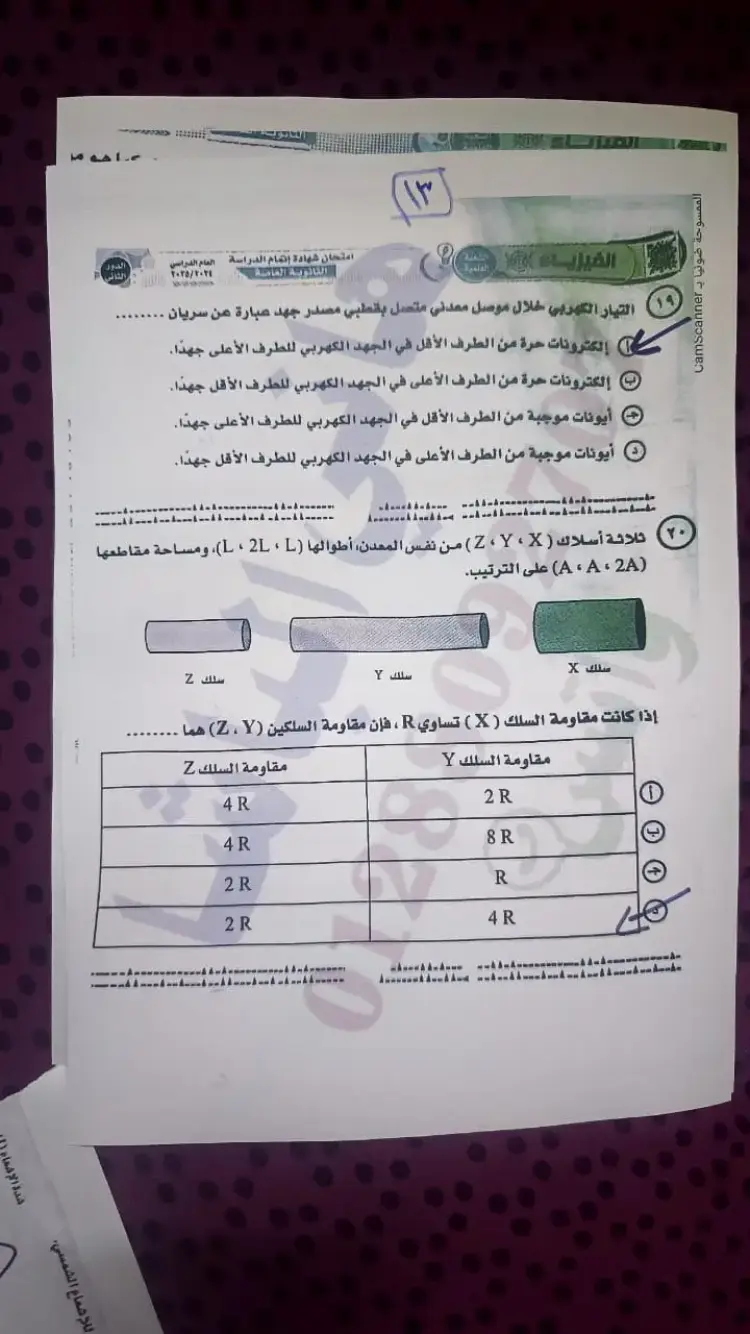 الفيزياء
١٣
الممسوحة ضوئيا بـ CamScanner
الفيزياء
الشعبة العلمية
امتحان شهادة إتمام الدراسة
الثانوية العامة
العام الدراسي
٢٠٢٥/٢٠٢٤
الدور الثاني
١٩ التيار الكهربي خلال موصل معدني متصل بقطبي مصدر جهد عبارة عن سريان ........
أ إلكترونات حرة من الطرف الأقل في الجهد الكهربي للطرف الأعلى جهدًا.
ب إلكترونات حرة من الطرف الأعلى في الجهد الكهربي للطرف الأقل جهدًا.
ج أيونات موجبة من الطرف الأقل في الجهد الكهربي للطرف الأعلى جهدًا.
د أيونات موجبة من الطرف الأعلى في الجهد الكهربي للطرف الأقل جهدًا.
٢٠ ثلاثة أسلاك (Z ، Y ، X) من نفس المعدن، أطوالها (L ، 2L ، L)، ومساحة مقاطعها
(A ، A ، 2A) على الترتيب.
سلك X
سلك Y
سلك Z
إذا كانت مقاومة السلك (X) تساوي R، فإن مقاومة السلكين (Z ، Y) هما ........
مقاومة السلك Y مقاومة السلك Z
أ 2 R 4 R
ب 8 R 4 R
ج R 2 R
د 4 R 2 R
هاني الباشا
01282092702
للإشعاع الشمسي.